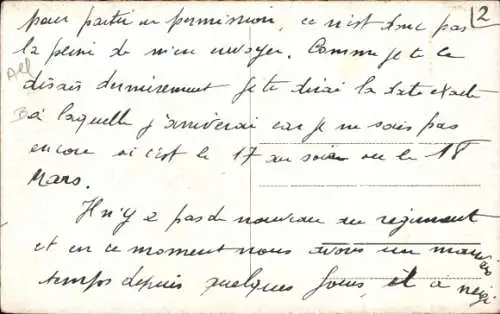 2
pour partir en permission, ce n'est donc pas
la peine de m'en envoyer. Comme je te le
All
disais dernièrement je te dirai la date exacte
à laquelle j'arriverai car je ne sais pas
encore si c'est le 17 au soir ou le 18
Mars.
Il n'y a pas de nouveau au régiment
et en ce moment nous avons un mauvais
temps depuis quelques jours, il a neigé